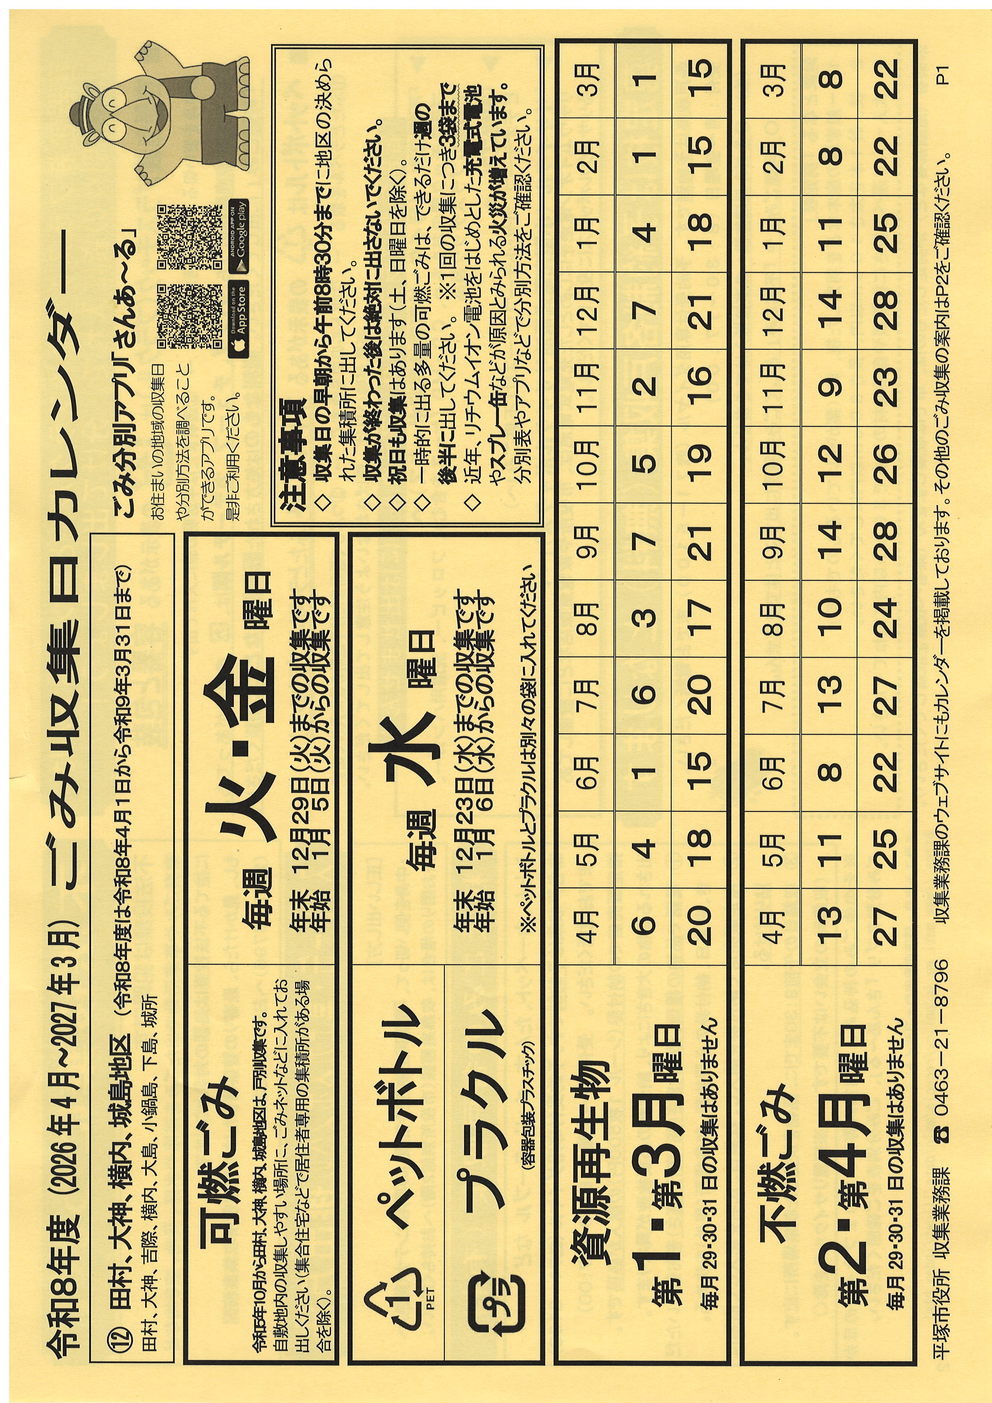 令和8年度（2026年4月～2027年3月）ごみ収集日カレンダー
⑫ 田村、大神、横内、城島地区（令和8年度は令和8年4月1日から令和9年3月31日まで）
田村、大神、吉際、横内、大島、小鍋島、下島、城所
ごみ分別アプリ「さんあ～る」
お住まいの地域の収集日
や分別方法を調べること
ができるアプリです。
是非ご利用ください。
Download on the
App Store
ANDROID APP ON
Google play
可燃ごみ
令和5年10月から田村、大神、横内、城島地区は、戸別収集です。
自敷地内の収集しやすい場所に、ごみネットなどに入れてお
出しください（集合住宅などで居住者専用の集積所がある場
合を除く）。
毎週 火・金 曜日
年末 12月29日（火）までの収集です
年始 1月 5日（火）からの収集です
PET
ペットボトル
プラ
プラクル
（容器包装プラスチック）
毎週 水 曜日
年末 12月23日（水）までの収集です
年始 1月 6日（水）からの収集です
※ペットボトルとプラクルは別々の袋に入れてください
注意事項
◇ 収集日の早朝から午前8時30分までに地区の決めら
れた集積所に出してください。
◇ 収集が終わった後は絶対に出さないでください。
◇ 祝日も収集はあります（土、日曜日を除く）。
◇ 一時的に出る多量の可燃ごみは、できるだけ週の
後半に出してください。 ※1回の収集につき3袋まで
◇ 近年、リチウムイオン電池をはじめとした充電式電池
やスプレー缶などが原因とみられる火災が増えています。
分別表やアプリなどで分別方法をご確認ください。
資源再生物
第1・第3月曜日
毎月29・30・31日の収集はありません
4月 5月 6月 7月 8月 9月 10月 11月 12月 1月 2月 3月
6 4 1 6 3 7 5 2 7 4 1 1
20 18 15 20 17 21 19 16 21 18 15 15
不燃ごみ
第2・第4月曜日
毎月29・30・31日の収集はありません
4月 5月 6月 7月 8月 9月 10月 11月 12月 1月 2月 3月
13 11 8 13 10 14 12 9 14 11 8 8
27 25 22 27 24 28 26 23 28 25 22 22
平塚市役所 収集業務課 ☎ 0463－21－8796 収集業務課のウェブサイトにもカレンダーを掲載しております。その他のごみ収集の案内はP2をご確認ください。 P1